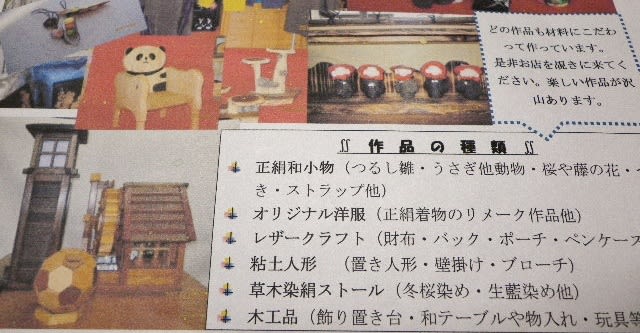 どの作品も材料にこだわ
って作っています。
是非お店を覗きに来てく
ださい。楽しい作品が沢
山あります。
∬ 作品の種類 ∬
正絹和小物（つるし雛・うさぎ他動物・桜や藤の花・
き・ストラップ他）
オリジナル洋服（正絹着物のリメーク作品他）
レザークラフト（財布・バック・ポーチ・ペンケース
粘土人形 （置き人形・壁掛け・ブローチ）
草木染絹ストール（冬桜染め・生藍染め他）
木工品（飾り置き台・和テーブルや物入れ・玩具等